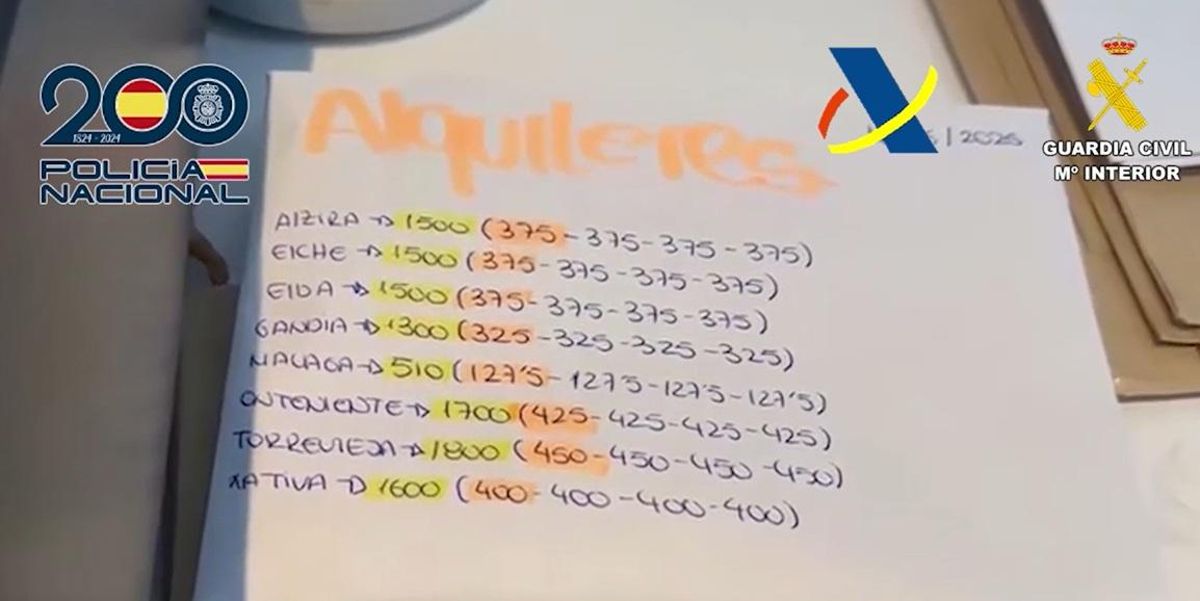 200
1824 - 2024
POLICÍA
NACIONAL
GUARDIA CIVIL
Mº INTERIOR
Alquileres
/2025
AlZIRA → 1500 (375 - 375 - 375 - 375)
ElCHE → 1500 (375 - 375 - 375 - 375)
ElDA → 1500 (375 - 375 - 375 - 375)
GANDIA → 1300 (325 - 325 - 325 - 325)
MALAGA → 510 (127'5 - 127'5 - 127'5 - 127'5)
ONTENIENTE → 1700 (425 - 425 - 425 - 425)
TORREVIEJA → 1800 (450 - 450 - 450 - 450)
XATIVA → 1600 (400 - 400 - 400 - 400)